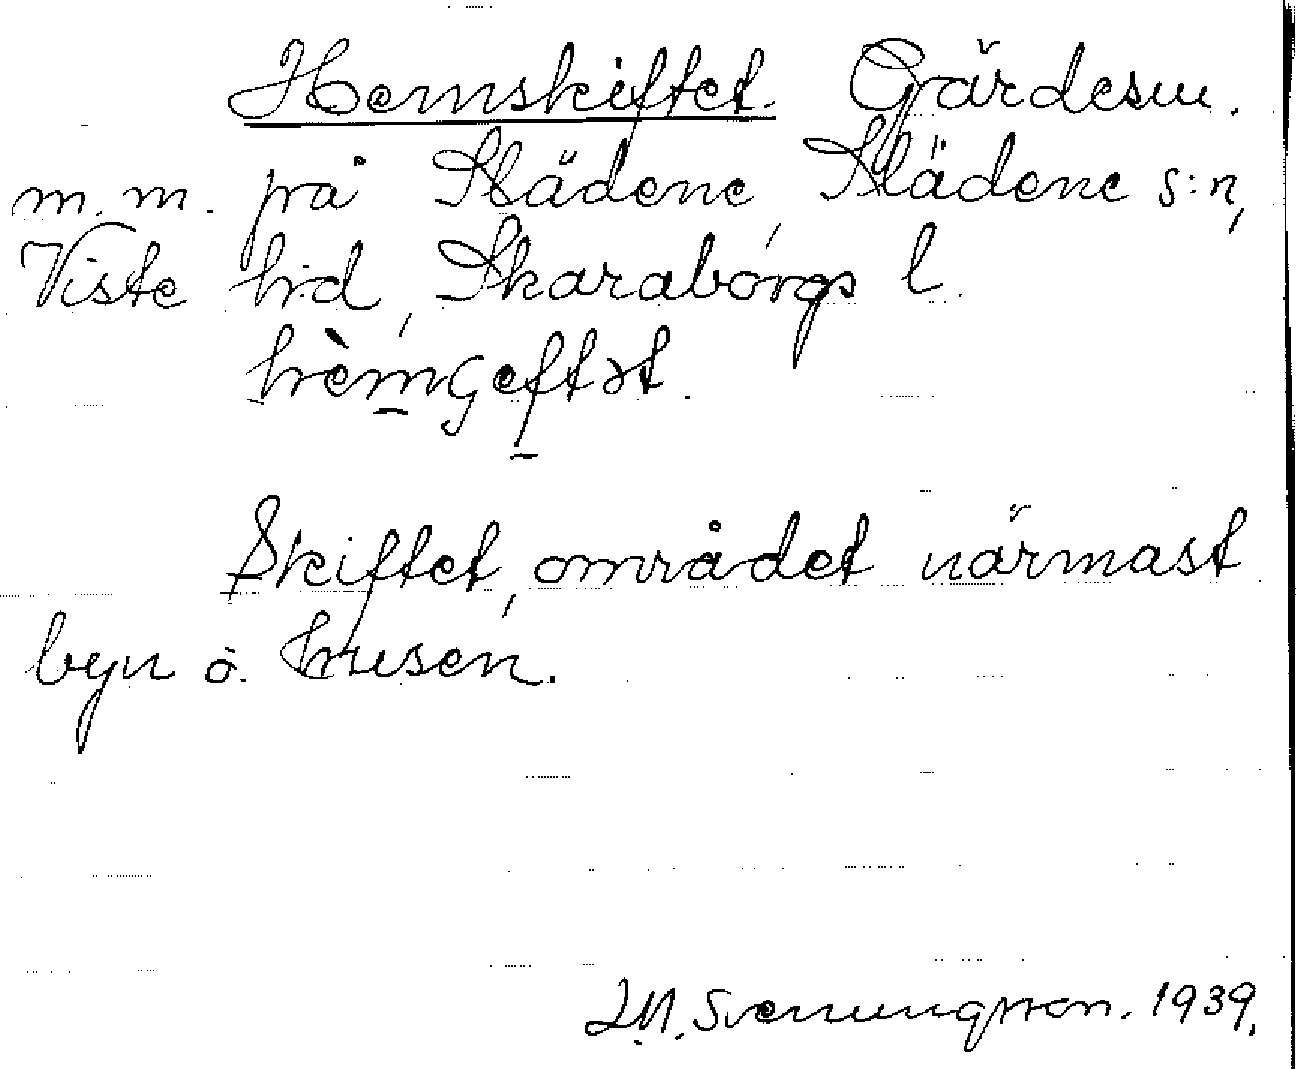 Hemskiftet. Gärdesn.
m.m. på Slädene, Slädene s:n,
Viste h:d, Skaraborgs l.
hèmçeftət.
Skiftet, området närmast
byn o. husen.
I.M. Svenungsson. 1939.